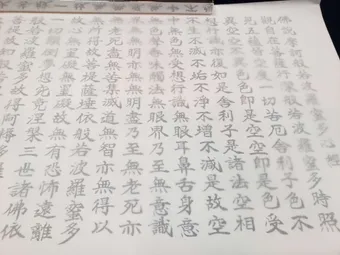 佛說摩訶般若波羅蜜多心經
觀自在菩薩行深般若波羅蜜多時照
見五蘊皆空度一切苦厄舍利子色不
異空空不異色色即是空空即是色受
想行識亦復如是舍利子是諸法空相
不生不滅不垢不淨不增不減是故空
中無色無受想行識無眼耳鼻舌身意
無色聲香味觸法無眼界乃至無意識
界無無明亦無無明盡乃至無老死亦
無老死盡無苦集滅道無智亦無得以
無所得故菩提薩埵依般若波羅蜜多
故心無罣礙無罣礙故無有恐怖遠離
一切顛倒夢想究竟涅槃三世諸佛依
般若波羅蜜多故得阿耨多羅
菩提故知般若